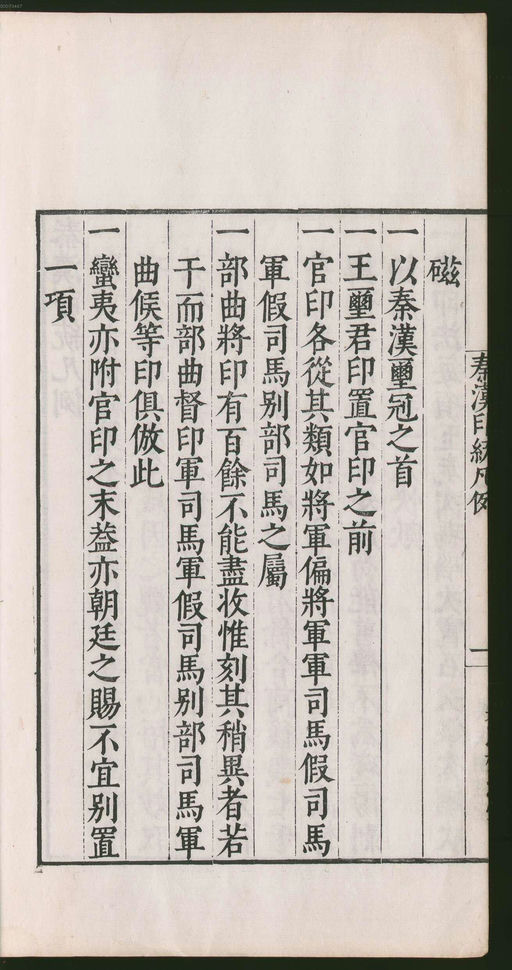 秦漢印統凡例
一
磁
一以秦漢璽冠之首
一王璽君印置官印之前
一官印各從其類如將軍偏將軍軍司馬假司馬
軍假司馬别部司馬之屬
一部曲將印有百餘不能盡收惟刻其稍異者若
干而部曲督印軍司馬軍假司馬别部司馬軍
曲候等印俱倣此
一蠻夷亦附官印之末葢亦朝廷之賜不宜别置
一項